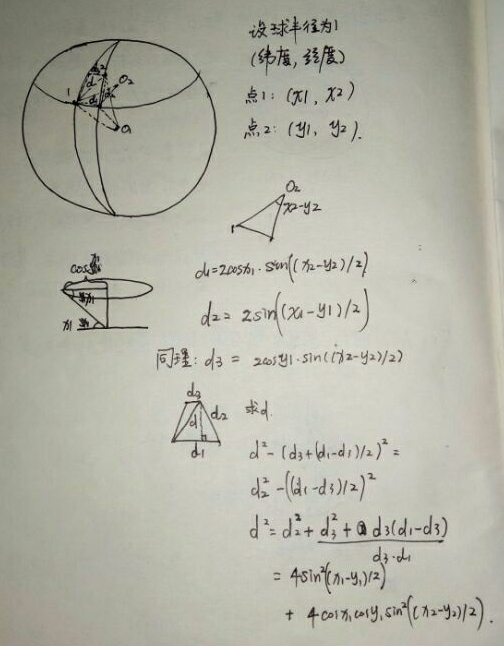 设球半径为1
(纬度, 经度)
点1: (x1, x2)
点2: (y1, y2).
1
2
d
d1
O2
O1
O2
x2-y2
1
d1=2cosx1·sin((x2-y2)/2)
d2= 2sin((x1-y1)/2)
cosx1
x1
同理: d3 = 2cosy1·sin((x2-y2)/2)
d3
d
d2
d1
求d.
d²-(d3+(d1-d3)/2)²=
d2²-((d1-d3)/2)²
d²=d2²+d3²+d3(d1-d3)
d3·d1
=4sin²((x1-y1)/2)
+ 4cosx1cosy1sin²((x2-y2)/2).